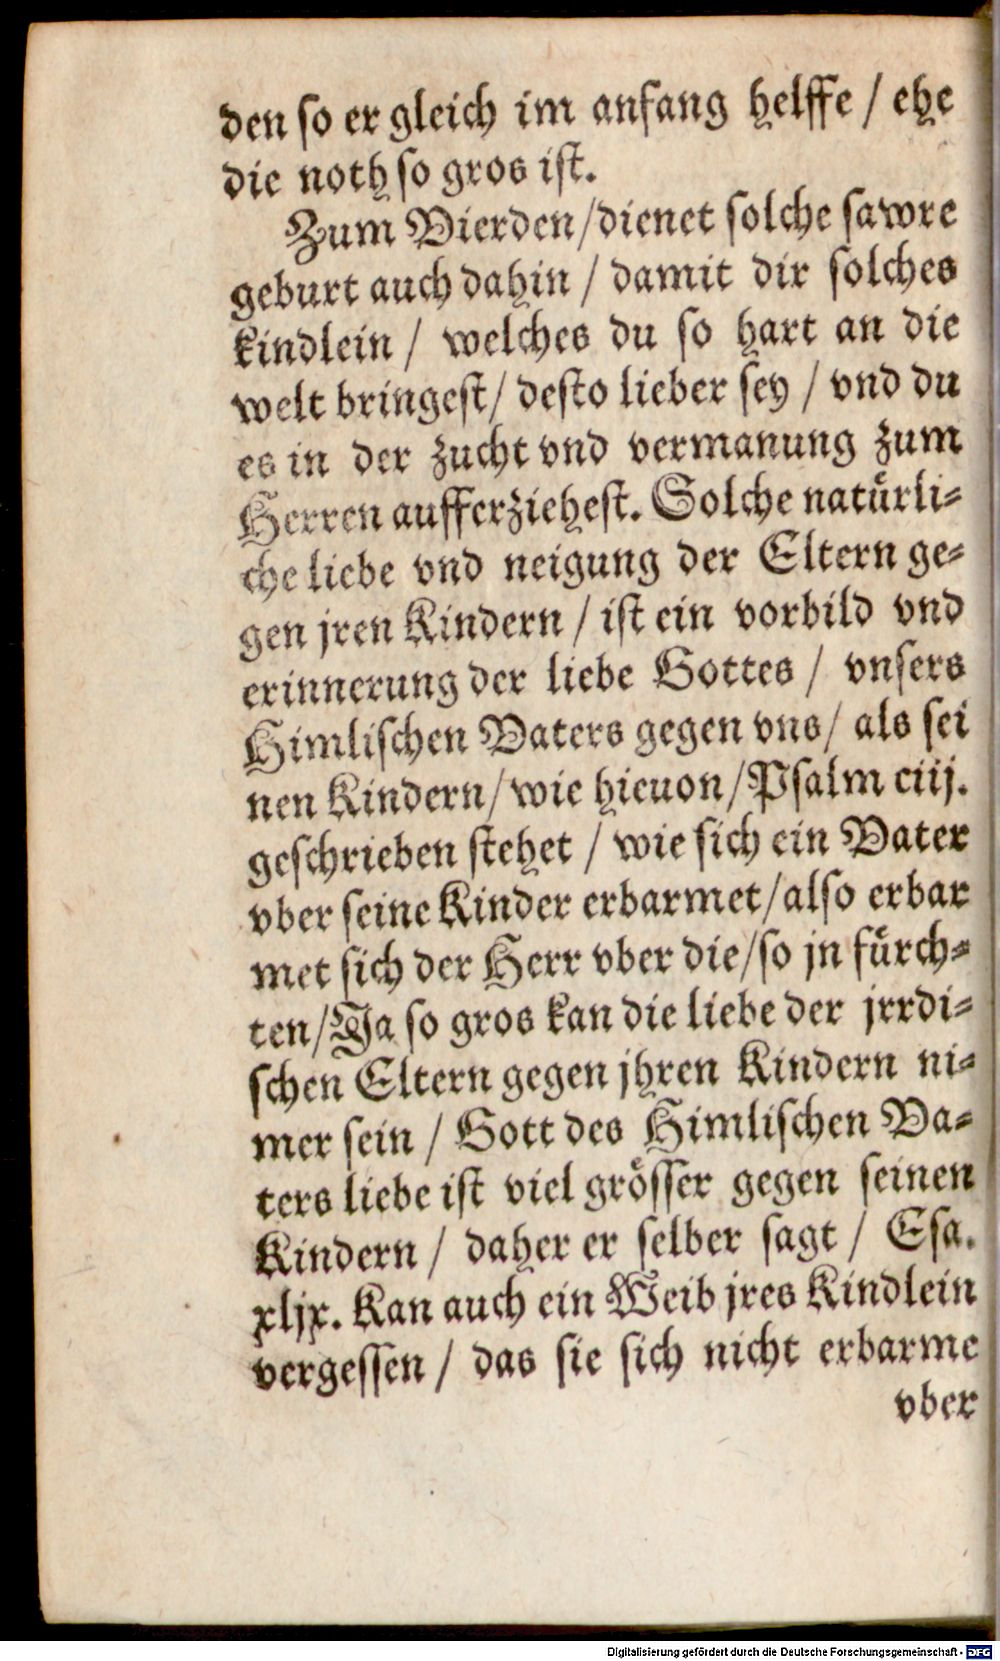 den so er gleich im anfang helffe / ehe
die noth so gros ist.
Zum Vierden/dienet solche sawre
geburt auch dahin / damit dir solches
kindlein / welches du so hart an die
welt bringest/ desto lieber sey / vnd du
es in der zucht vnd vermanung zum
Herren aufferziehest. Solche natuͤrli-
che liebe vnd neigung der Eltern ge-
gen jren Kindern / ist ein vorbild vnd
erinnerung der liebe Gottes / vnsers
Himlischen Vaters gegen vns/ als sei
nen Kindern/wie hieuon/Psalm ciij.
geschrieben stehet / wie sich ein Vater
vber seine Kinder erbarmet/also erbar
met sich der Herr vber die/so jn fuͤrch-
ten/Ja so gros kan die liebe der jrrdi-
schen Eltern gegen jhren Kindern ni-
mer sein / Gott des Himlischen Va-
ters liebe ist viel groͤsser gegen seinen
Kindern / daher er selber sagt / Esa.
xljx. Kan auch ein Weib jres Kindlein
vergessen / das sie sich nicht erbarme
vber
Digitalisierung gefördert durch die Deutsche Forschungsgemeinschaft - DFG